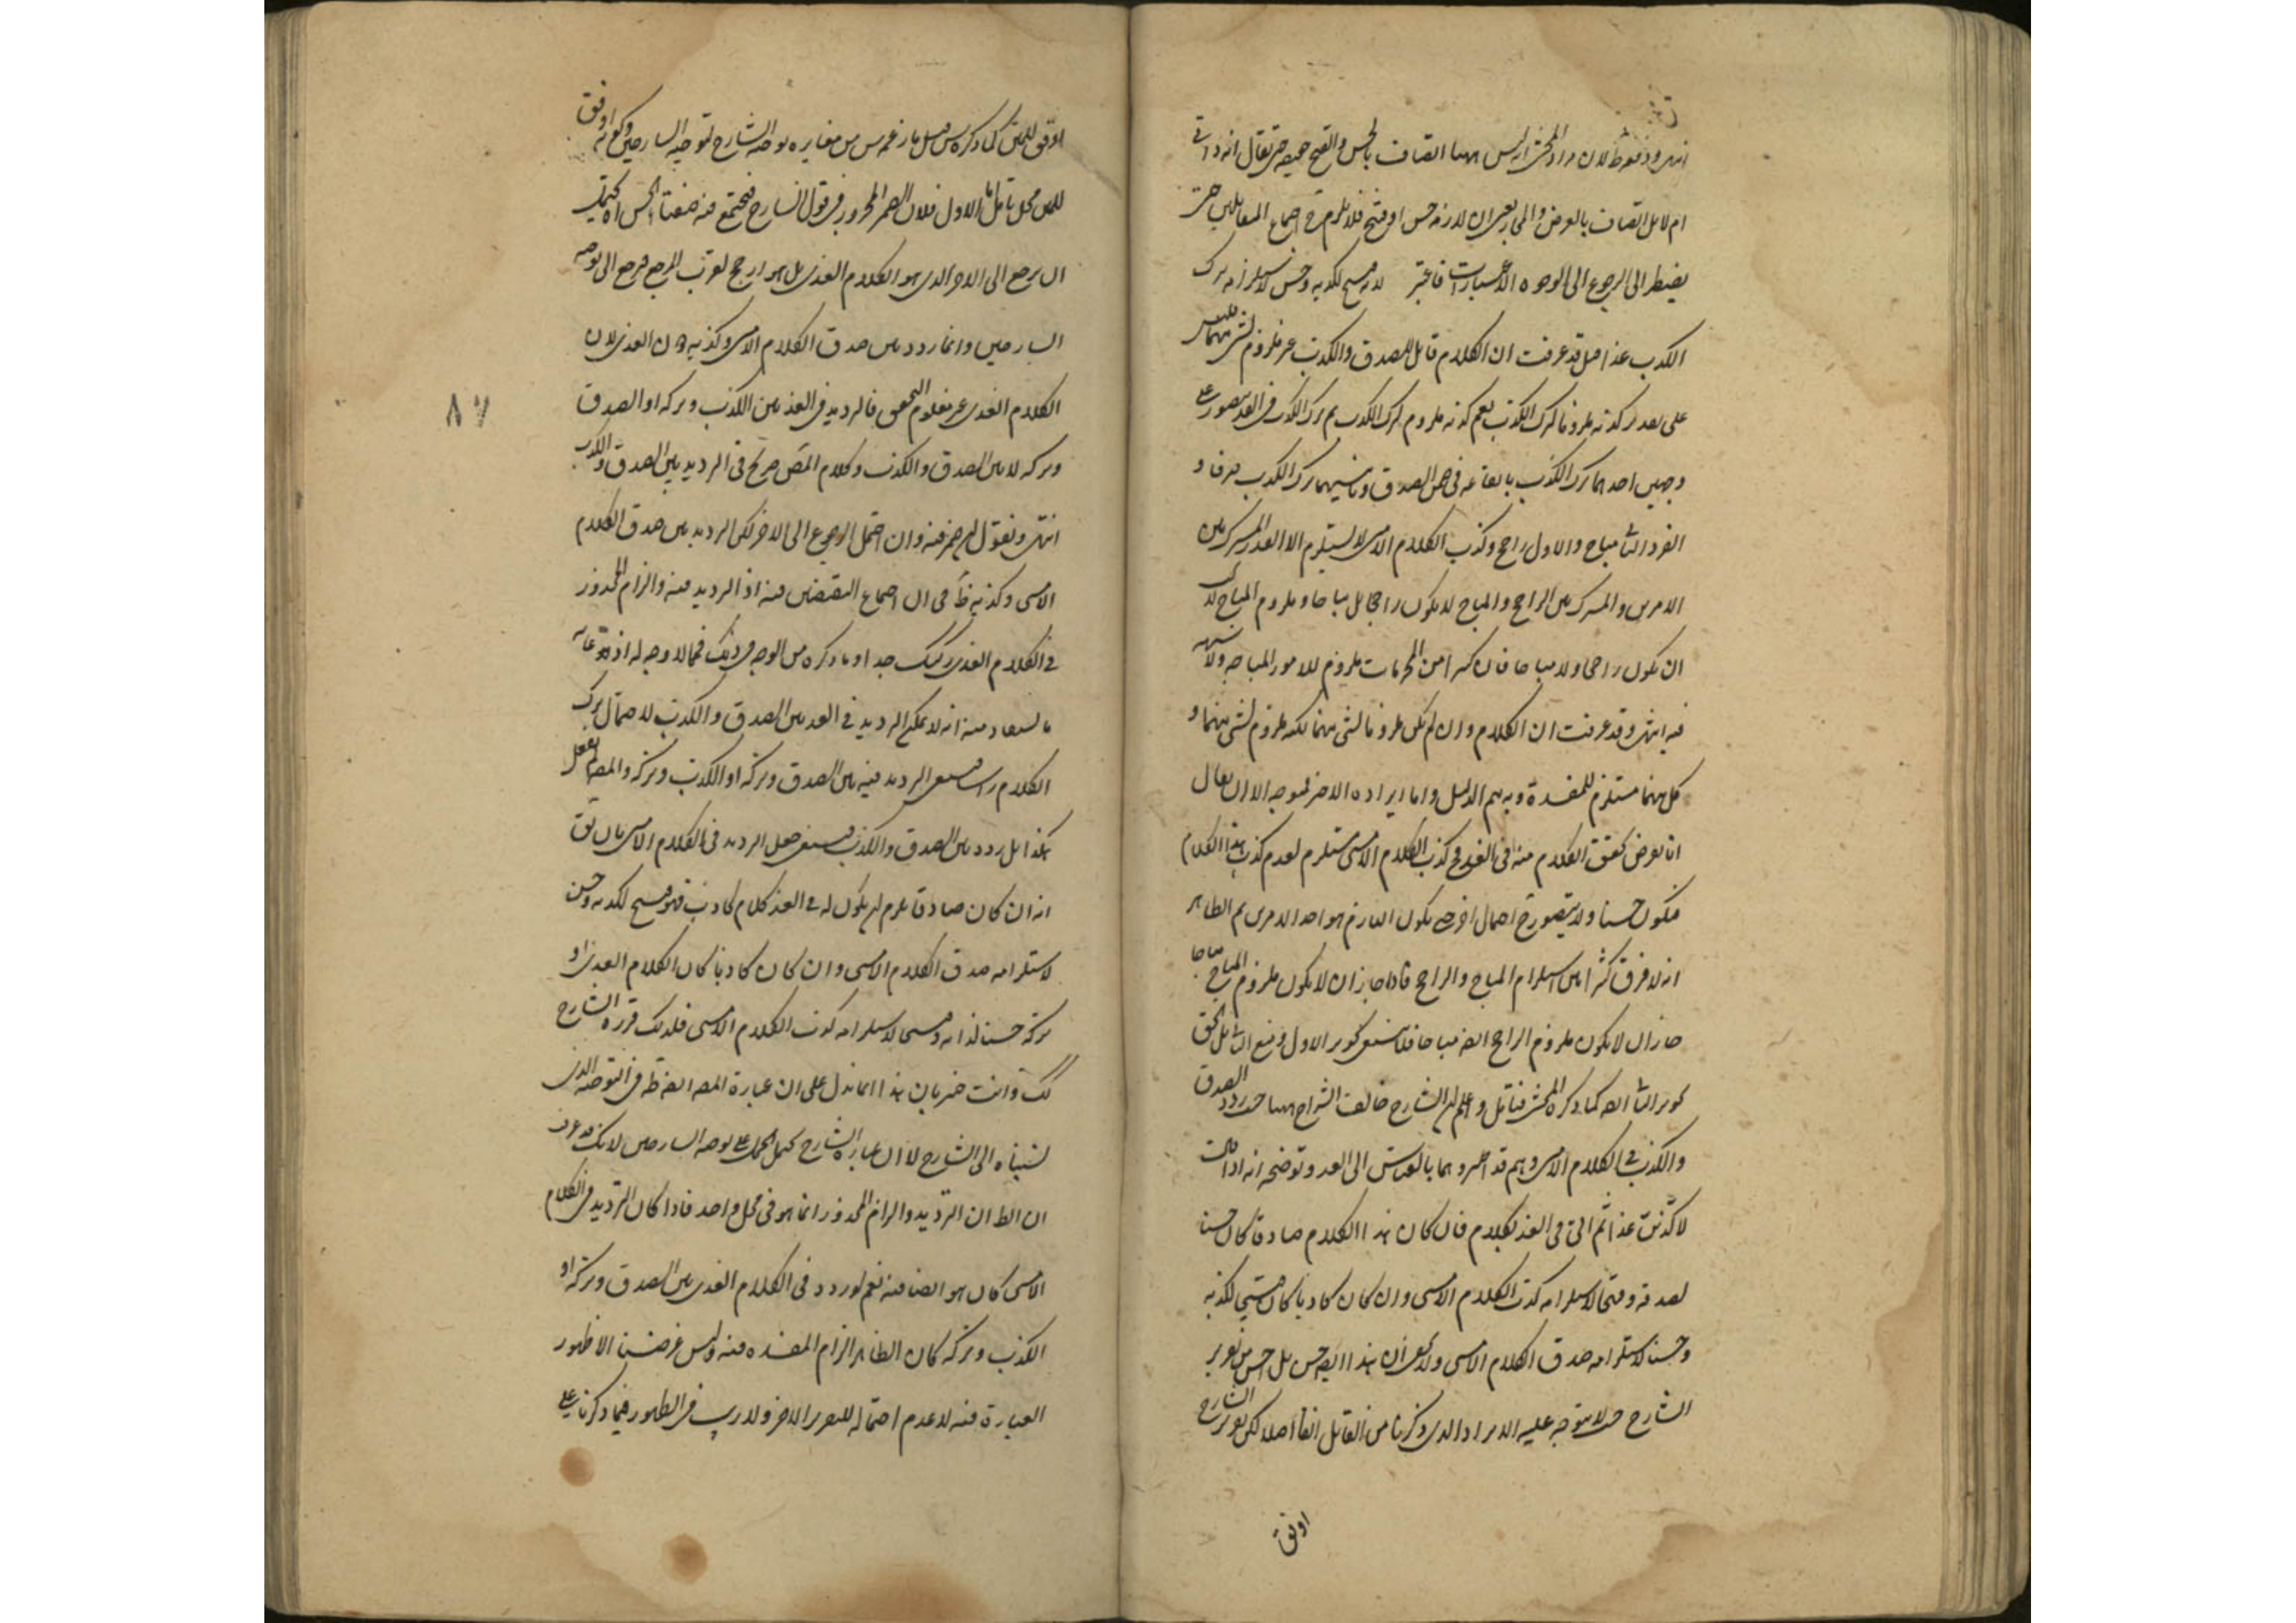 انتهى وسقوطه لان مراد المحشى انه ليس ههنا اتصاف بالحسن والقبح حقيقة حتى يقال انه ذاتى
ام لا بل اتصاف بالعرض والمجاز بمعنى ان لازمه حسن او قبيح فلا يلزم ح اجتماع المتقابلين حتى
يضطر الى الرجوع الى الوجوه الاعتبارات فاعتبر لانه قبيح لكذبه وحسن لاستلزامه ترك
الكذب غدا قد عرفت ان الكلام قابل للصدق والكذب غير ملزوم لشى منهما
على تقدير كونه ملزوما لترك الكذب نعم كونه ملزوم لترك الكذب ثم ترك الكذب فى الغد يتصور على
وجهين احدهما ترك الكذب بايقاعه فى ضمن الصدق وثانيهما ترك الكذب
الفرد الثانى مباح والاول راجح وكذب الكلام الامسى لا يستلزم الا القدر المشترك بين
الامرين والمشترك بين الراجح والمباح لا يكون راجحا بل مباحا وملزوم المباح لا يجب
ان يكون راجحا ولا مباحا فان كثيرا من المحرمات ملزوم للامور المباحة ولا شبهة
فيه انتهى وقد عرفت ان الكلام وان لم يكن ملزوما لشى منهما لكنه ملزوم لشى منهما و
كل منهما مستلزم للمفسدة وبه يتم الدليل واما ايراده الاخر فيتوجه الا ان يقال
انا نفرض تحقق الكلام منه فى الغد فح كذب الكلام الامسى مستلزم لعدم كذب هذا الكلام
فيكون حسنا ولا يتصور ح احتمال اخر حتى يكون اللازم هو احد الامرين ثم الظاهر
انه لا فرق كثيرا بين استلزام المباح والراجح فاذا جاز ان لا يكون ملزوم المباح مباحا
جاز ان لا يكون ملزوم الراجح ايضا مباحا فلا يستقيم تجويز الاول ومنع الثانى بل الحق
تجويز الثانى ايضا كما ذكره المحشى فتامل واعلم ان الشارح خالف الشراح ههنا حيث ردد الصدق
والكذب فى الكلام الامسى وهم قد اعتبروهما بالقياس الى الغد وتوضيحه انه اذا قال
لاكذبن غدا ثم اتى فى الغد بكلام فان كان هذا الكلام صادقا كان حسنا
لصدقه وقبيحا لاستلزامه كذب الكلام الامسى وان كان كاذبا كان قبيحا لكذبه
وحسنا لاستلزامه صدق الكلام الامسى ولا يخفى ان هذا ايضا حسن بل احسن من تقرير
الشارح حيث لا يتوجه عليه الايراد الذى ذكرنا من القائل انفا اصلا لكن تقرير الشارح
اوفق
اوفق للمتن كما ذكره
للمتن محل تامل اما الاول فلان الضمير المجرور فى قول الشارح فيجتمع فيه صفتا الحسن اه يحتمل
ان يرجع الى الاخر الذى هو الكلام الغدى بل هو ارجح لقرب المرجع فيرجع الى توجيه
الشارحين وانما ردد بين صدق الكلام الامسى وكذبه دون الغدى لان
الكلام الغدى غير معلوم التحقق فالترديد فى الغد بين الكذب وتركه او الصدق
وتركه لا بين الصدق والكذب وكلام المص صريح فى الترديد بين الصدق والكذب
انتهى ونقول ان ضمير فيه وان احتمل الرجوع الى الاخر لكن الترديد بين صدق الكلام
الامسى وكذبه ظاهر فى ان اجتماع النقيضين فيه اذ الترديد فيه والزام المحذور
فى الكلام الغدى ركيك جدا وما ذكره من الوجه فى ذلك فمما لا وجه له اذ غاية
ما يستفاد منه انه لا يمكن الترديد فى الغد بين الصدق والكذب لاحتمال ترك
الكلام راسا فينبغى الترديد فيه بين الصدق وتركه او الكذب وتركه والمص لم يفعل
هكذا بل ردد بين الصدق والكذب فينبغى جعل الترديد فى الكلام الامسى بان يقال
انه ان كان صادقا يلزم ان يكون له فى الغد كلام كاذب فهو قبيح لكذبه وحسن
لاستلزامه صدق الكلام الامسى وان كان كاذبا كان الكلام الغدى او
تركه حسنا لذاته وقبيحا لاستلزامه كذب الكلام الامسى فلذلك قرره الشارح
كذلك وانت خبير بان هذا انما يدل على ان عبارة المص ايضا ظاهرة فى التوجيه الذى
نسبناه الى الشارح لا ان عبارة الشارح يحتمل الحمل على توجيه الشارحين لانك قد عرفت
ان الظاهر ان الترديد والزام المحذور انما هو فى محل واحد فاذا كان الترديد فى الكلام
الامسى كان هو ايضا فيه نعم لو ردد فى الكلام الغدى بين الصدق وتركه او
الكذب وتركه كان الظاهر الزام المفسدة فيه وليس غرضنا الا ظهور
العبارة فيه لا عدم احتماله للتقرير الاخر ولا ريب فى الظهور فيما ذكرنا على
٨٧